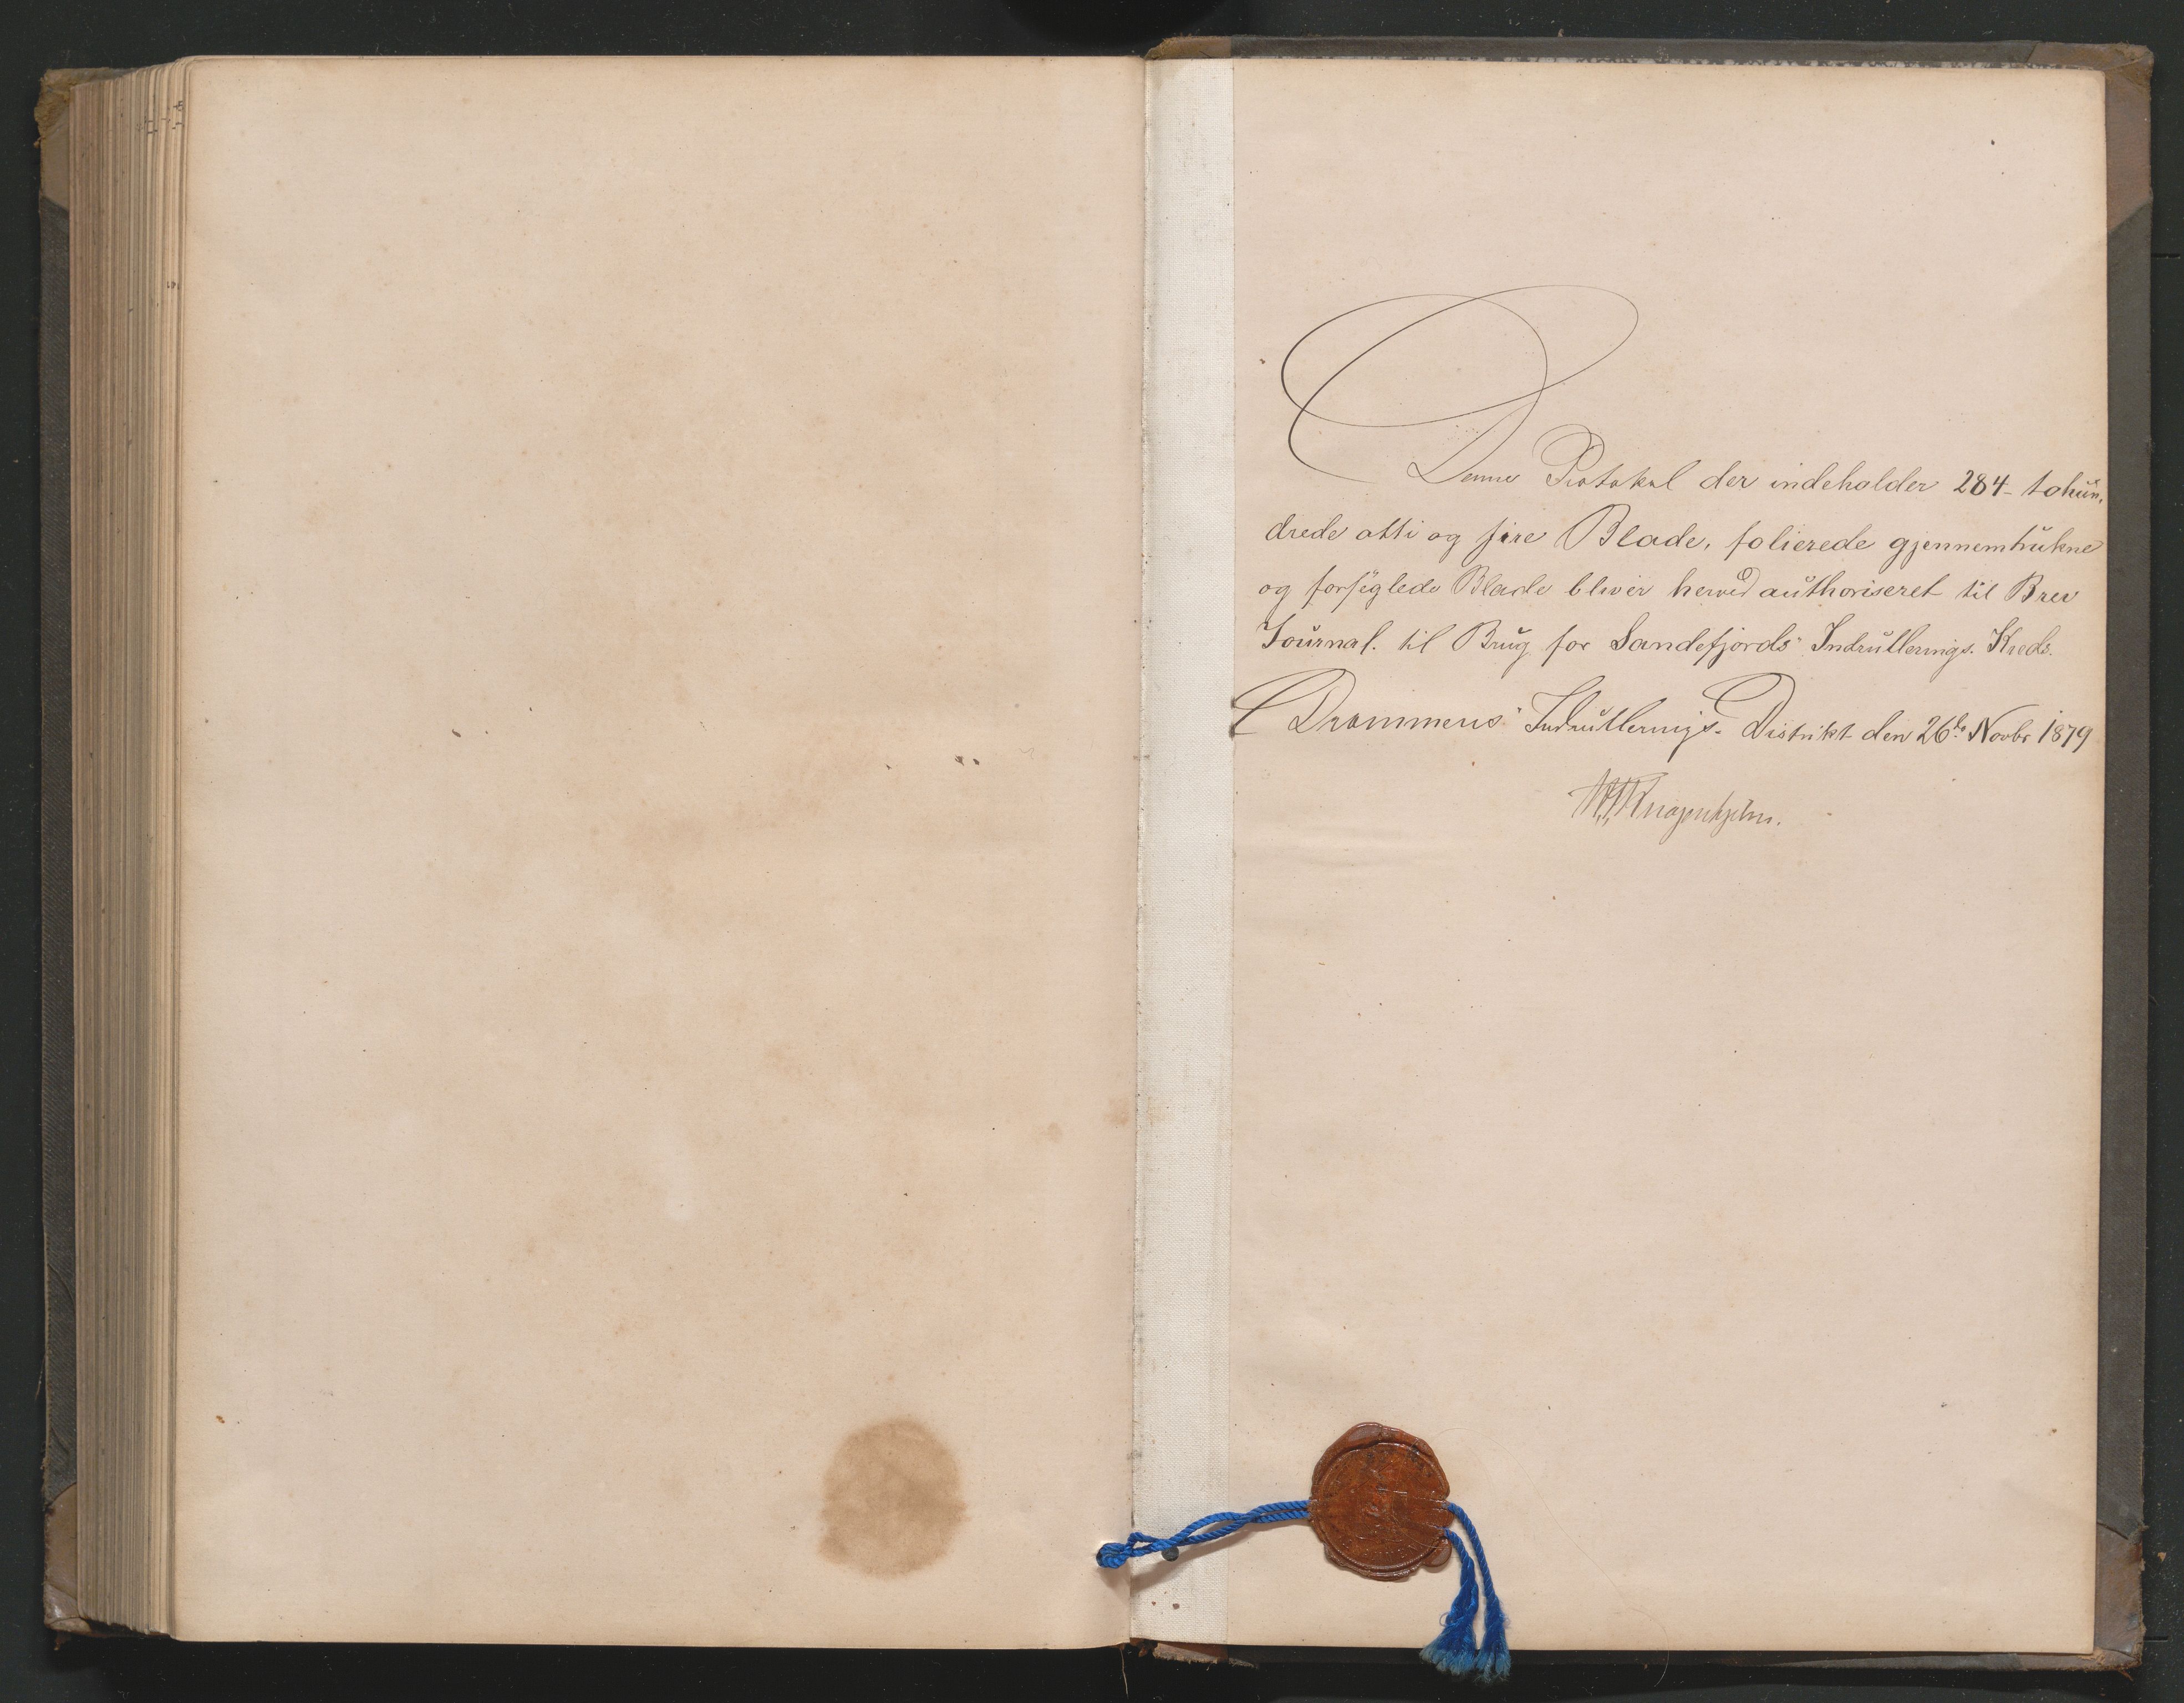 Denne Protokol der indeholder 284- tohun,
drede otti og fire Blade, folierede gjennemtrukne
og forseglede Blade bliver herved authoriseret til Brev
Journal. til Brug for Sandefjords Indrullerings. Kreds.
Drammens Indrullerings- Distrikt den 26de Novbr 1879